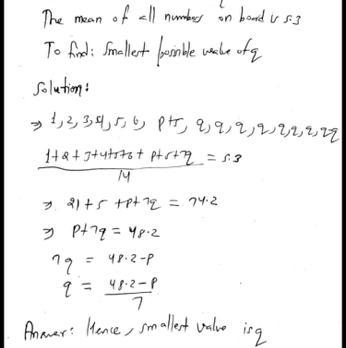 The mean of all numbers on board is 5.3
To find: Smallest possible value of q
Solution:
⇒ 1, 2, 3, 4, 5, 6, P+5, q, q, q, q, q, q, q
1+2+3+4+5+6+P+5+7q = 5.3
14
⇒ 21+5+P+7q = 74.2
⇒ P+7q = 48.2
7q = 48.2-P
q = 48.2-P
7
Answer: Hence, smallest value is q